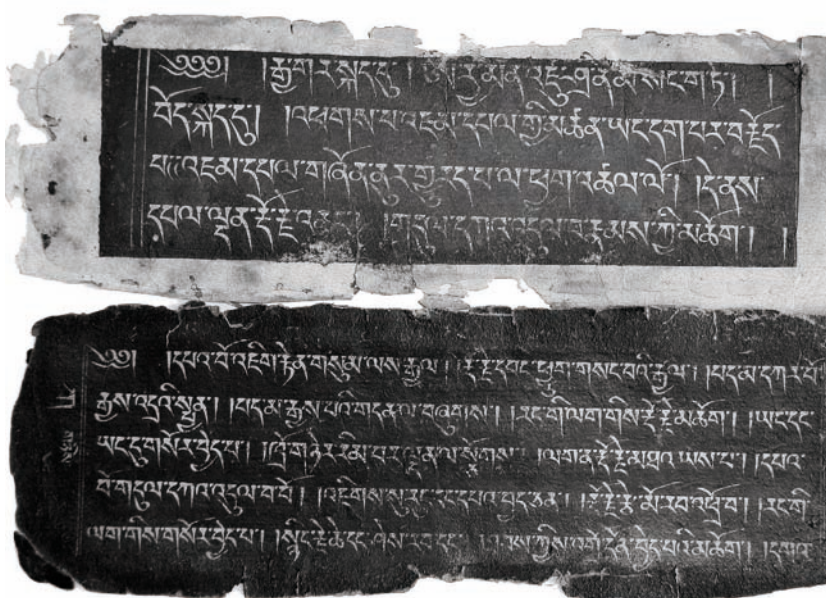 ༄༅༅། །རྒྱ་གར་སྐད་དུ། མན་འཛུ་ཤྲི་ན་མ་སང་ག་ཏི། །
བོད་སྐད་དུ། །འཕགས་པ་འཇམ་དཔལ་གྱི་མཚན་ཡང་དག་པར་བརྗོད་
པ༎འཇམ་དཔལ་གཞོན་ནུར་གྱུརད་པ་ལ་ཕྱག་འཚལ་ལོ། །དེ་ནས་
དཔལ་ལྡན་རྡོ་རྗེ་འཆང་། །གདུལ་དཀའ་འདུལ་བ་རྣམས་ཀྱི་མཆོག། །
༄༅། །དཔའ་བོ་འཇིག་རྟེན་གསུམ་ལས་རྒྱལ། །རྡོ་རྗེ་དབང་ཕྱུག་གསང་བའི་རྒྱལ། །པད་མ་དཀར་པོ་
རྒྱས་འདྲའི་སྤྱན། །པད་མ་རྒྱས་པའི་གདན་ལ་བཞུགས། །རང་གི་ལག་གིས་རྡོ་རྗེ་མཆོག། །ཡང་དང་
ཡང་དུ་གསོར་བྱེད་པ། །ཁྲོ་གཉེར་རིམ་པར་ལྡན་ལ་སྩོགས། །ལག་ན་རྡོ་རྗེ་མཐའ་ཡས་པ། །དཔའ་
བོ་གདུལ་དཀའ་འདུལ་བ་པོ། །འཇིགས་སུ་རུང་དང་དཔའ་བྱད་ཅན། །རྡོ་རྗེ་རྩེ་མོ་རབ་འཕྲོ་བ། །རང་གི་
ལག་གིས་གསོར་བྱེད་པ། །སྙིང་རྗེ་ཆེ་དང་ཤེས་རབ་དང་། །ཐབས་ཀྱིས་འགྲོ་དོན་བྱེད་པའི་མཆོག། །དགའ་